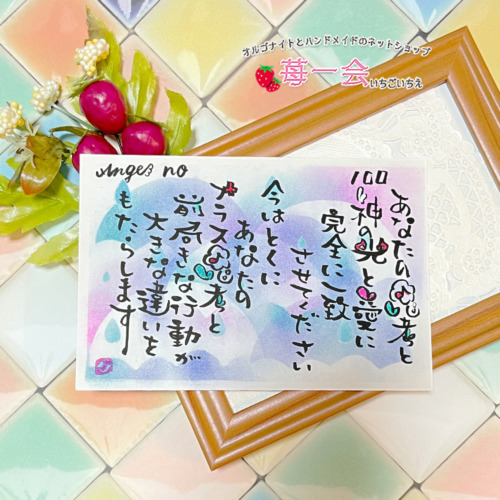 オルゴナイトとハンドメイドのネットショップ
苺一会
いちごいちえ
Angel no
100
あなたの思考と
神の光と愛に
完全に一致
させてください
今はとくに
あなたの
プラス思考と
前向きな行動が
大きな違いを
もたらします